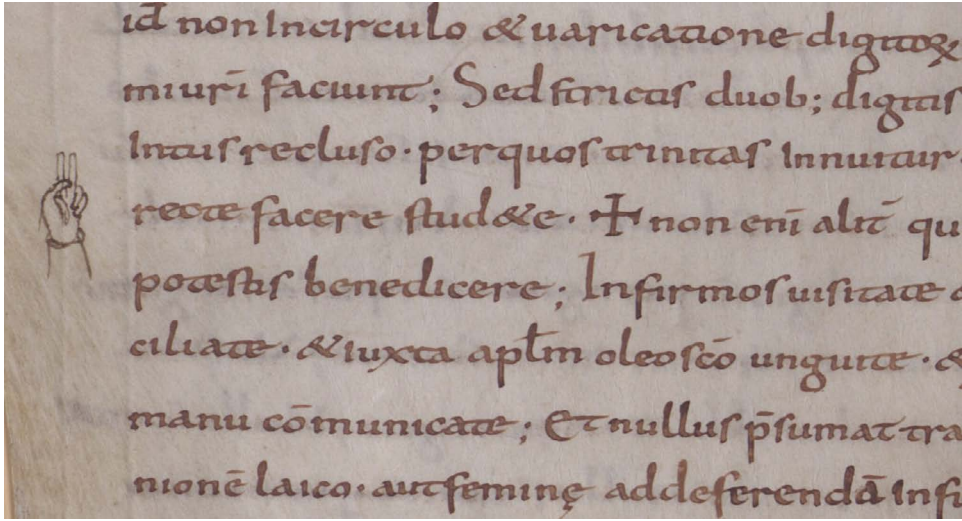 id̄ non Incirculo & uaricatione digitoꝝ
miuri faciunt; Sed strictis duob; digitis
Intus recluso· per quos trinitas Innuitur·
recte facere stud&e· ✝ non enī alit̄ qu
potestis benedicere; Infirmos uisitate
ciliate· & iuxta apłm oleo scō unguite· &
manu cōmunicate; Et nullus p̄sumat tra
nionē laico· aut feminę ad deferendā Infi